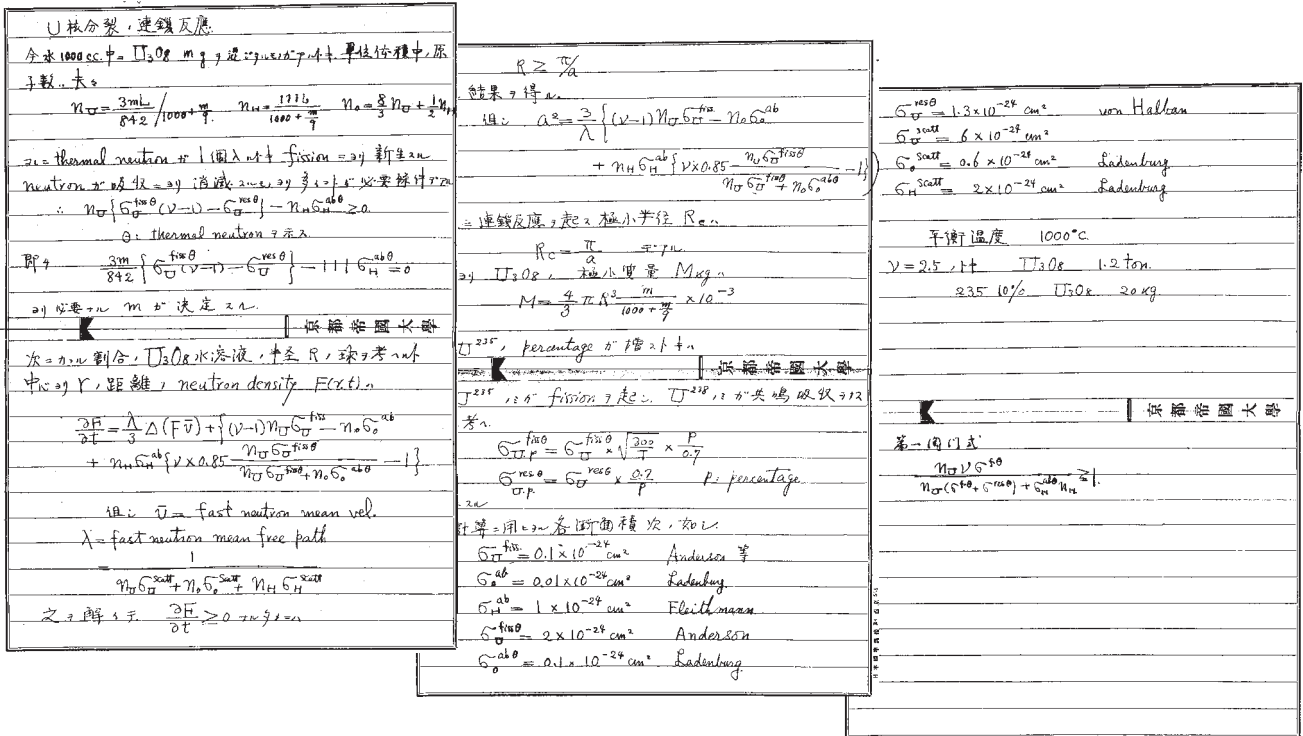 U核分裂、連鎖反應
今水1000cc.中ニ U₃O₈ m g ヲ混ジタルモノガアルトキ 單位体積中ノ原
子數ハ 夫々
n_U = 3mL/842 / 1000+m/9. n_H = 111L / 1000+m/9 n_o = 8/3 n_U + 1/2 n_H
コレニ thermal neutron ガ 1個入ルトキ fission ニヨリ 新生スル
neutron ガ吸收ニヨリ 消滅スルモノヨリ多イトガ必要條件デアル
∴ n_U{σ_U^{fissθ}(ν-1) - σ_U^{resθ}} - n_Hσ_H^{abθ} ≥ 0.
θ: thermal neutron ヲ示ス.
即チ 3m/842 {σ_U^{fissθ}(ν-1) - σ_U^{resθ}} - 111σ_H^{abθ} = 0
ヨリ必要ナル m ガ 決定スル.
京都帝國大學
次ニカヽル割合ノ U₃O₈水溶液ノ半径 R ノ球ヲ考ヘルト
中心ヨリ r ノ距離ノ neutron density F(r.t)ハ
∂F/∂t = λ/3 Δ(Fv̄) + {(ν-1)n_Uσ_U^{fiss} - n_oσ_o^{ab}
+ n_Hσ_H^{ab}{ν×0.85 n_Uσ_U^{fissθ} / n_Uσ_U^{fissθ}+n_oσ_o^{abθ} - 1}
但シ v̄ = fast neutron mean vel.
λ = fast neutron mean free path
= 1 / n_Uσ_U^{scatt} + n_oσ_o^{scatt} + n_Hσ_H^{scatt}
之ヲ解イテ ∂F/∂t ≥ 0 ナルタメニハ
R ≥ π/a
結果ヲ得ル.
但シ a² = 3/λ {(ν-1)n_Uσ_U^{fiss} - n_oσ_o^{ab}
+ n_Hσ_H^{ab}{ν×0.85 n_Uσ_U^{fissθ} / n_Uσ_U^{fissθ}+n_oσ_o^{abθ} - 1}
ニ連鎖反應ヲ起ス極小半径 Rcハ
Rc = π/a デアル.
ヨリ U₃O₈ノ 極小質量 M kgハ
M = 4/3 πR³ m / 1000+m/9 × 10⁻³
U²³⁵ノ percentage ガ 増ストキハ
京都帝國大學
U²³⁵ノミガ fission ヲ起シ、U²³⁸ノミガ共鳴吸收ヲ
考ヘ
σ_{U.P}^{fissθ} = σ_U^{fissθ} × √(300/T) × P/0.7
σ_{U.P.}^{resθ} = σ_U^{resθ} × 0.7/P P: percentage
スル
計算ニ用ヒタル各斷面積次ノ如シ.
σ_U^{fiss} = 0.1×10⁻²⁴ cm² Anderson 等
σ_o^{ab} = 0.01×10⁻²⁴ cm² Ladenburg
σ_H^{ab} = 1×10⁻²⁴ cm² Fleithmann
σ_U^{fissθ} = 2×10⁻²⁴ cm² Anderson
σ_o^{abθ} = 0.1×10⁻²⁴ cm² Ladenburg
σ_U^{resθ} = 1.3×10⁻²⁴ cm² von Halban
σ_U^{scatt} = 6×10⁻²⁴ cm²
σ_o^{scatt} = 0.6×10⁻²⁴ cm² Ladenburg
σ_H^{scatt} = 2×10⁻²⁴ cm² Ladenburg
平衡温度 1000°C.
ν = 2.5 ノトキ U₃O₈ 1.2 ton.
235 10% U₃O₈ 20 kg
京都帝國大學
第一關門式
n_Uνσ^{fθ} / n_U(σ^{fθ}+σ^{resθ})+σ_H^{abθ}n_H ≥ 1.